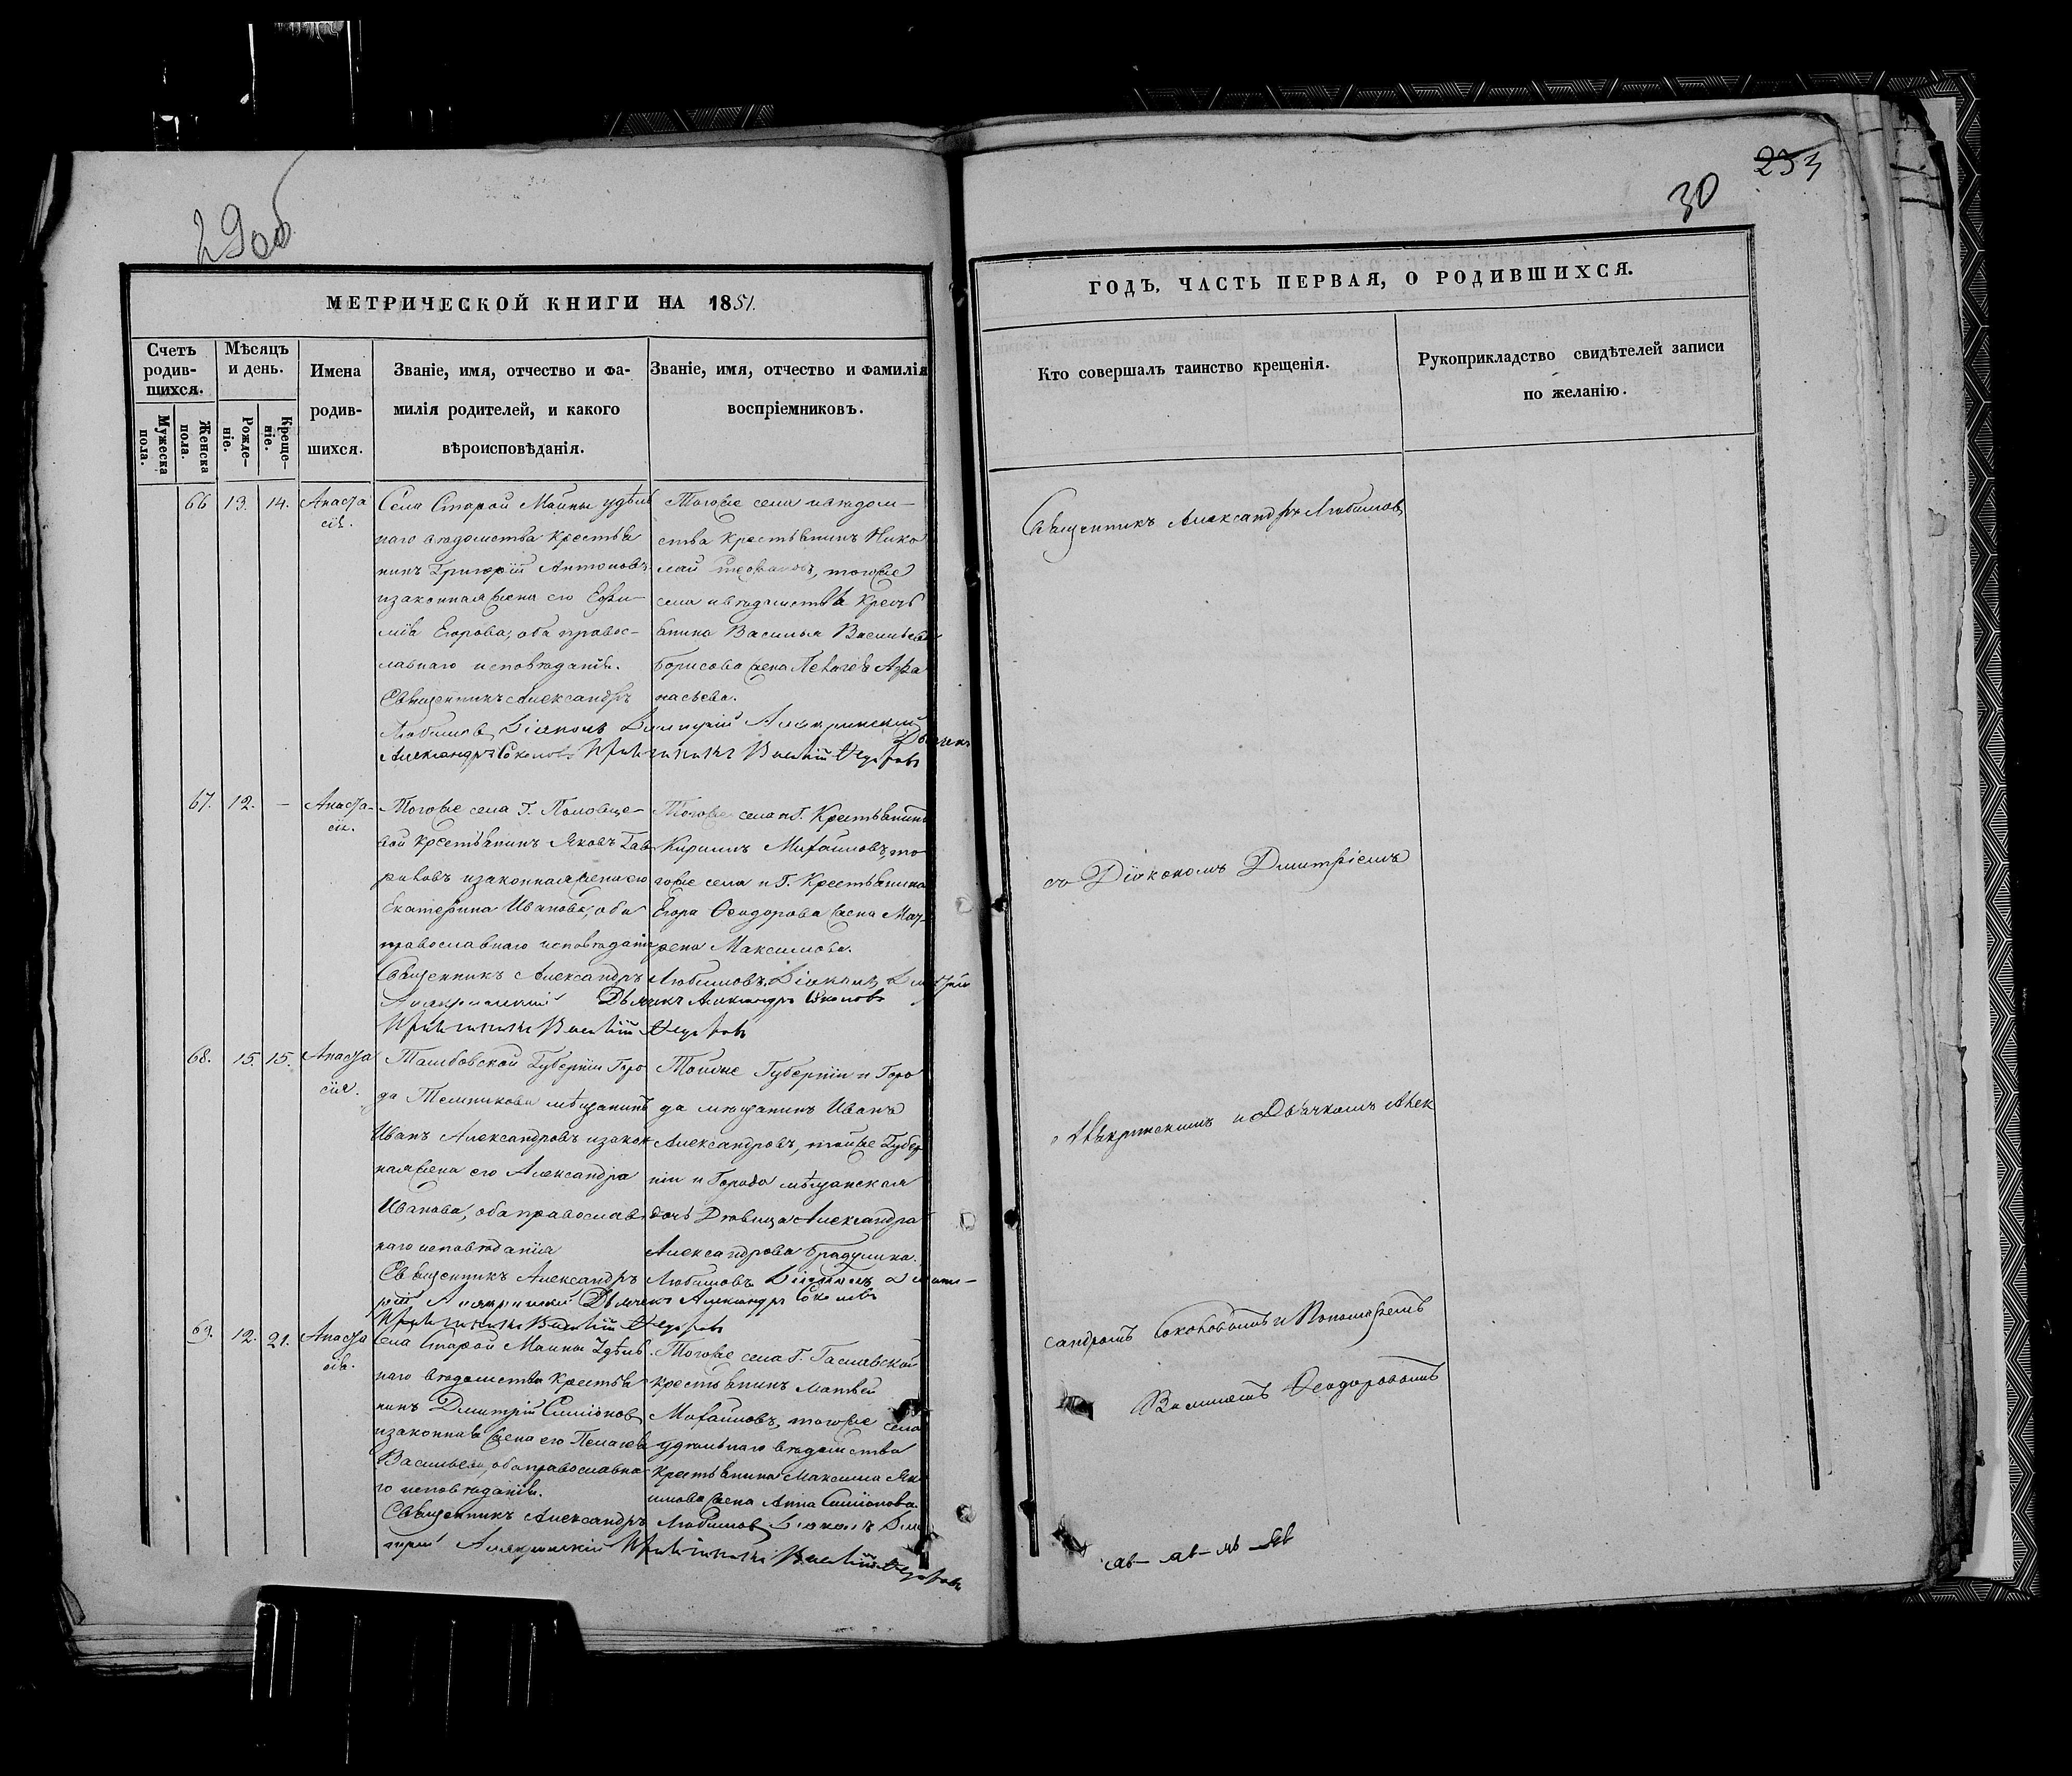 29об
МЕТРИЧЕСКОЙ КНИГИ НА 1851.
Счетъ родив-шихся.
Мужеска пола.
Женска пола.
Мѣсяцъ и день.
Рожде-ніе.
Креще-ніе.
Имена
родив-
шихся.
Званіе, имя, отчество и фа-
милія родителей, и какого
вѣроисповѣданія.
Званіе, имя, отчество и фамилія
воспріемниковъ.
66 13. 14. Анаста
сія.
Села Старой Майны удѣль
наго вѣдомства крестья
нинъ Григорій Антоновъ
и законная жена его Ефи-
мія Егорова, оба правос-
лавнаго исповѣданія.
Священникъ Александръ
Любимовъ Діаконъ Димитрій
Александръ Соколовъ Василій Ѳедоровъ
Тогоже села и вѣдом-
ства крестьянинъ Нико
лай тогоже
села и вѣдомства крест
янина Василья Васильева
Борисова жена Пелагея Афа
насьева.
67. 12. — Анаста-
сія.
Тогоже села Г. Половце-
вой крестьянинъ Яковъ Гав
риловъ и законная жена его
Екатерина Иванова, оба
православнаго исповѣданія
Священникъ Александръ Любимовъ Діаконъ Дмитрій
Дьячекъ Александръ Соколовъ
Василій Ѳедоровъ
Тогоже села и Г. Крестьянинъ
Кириллъ Михайловъ, то
гоже села и Г. Крестьянина
Егора Ѳеодорова жена Мат
рена Максимова.
68. 15. 15. Анаста
сія.
Тамбовской Губерніи Горо
да Темникова мѣщанинъ
Иванъ Александровъ и закон
ная жена его Александра
Иванова, оба православ
наго исповѣданія
Священникъ Александръ Любимовъ Діаконъ Димит-
рій Дьячекъ Александръ Соколовъ
Василій Ѳедоровъ
Тойже Губерніи и Горо
да мѣщанинъ Иванъ
Александровъ, тойже Губер
ніи и Города мѣщанская
дочь Дѣвица Александра
Александрова
69. 12. 21. Анаста
сія.
Села Старой Майны Удѣль
наго вѣдомства крестья
нинъ Дмитрій Симіоновъ
и законная жена его Пелагея
Васильева, оба православна
го исповѣданія.
Священникъ Александръ Любимовъ Діаконъ Дми
трій Василій Ѳедоровъ
Тогоже села Г.
крестьянинъ Матвей
Михайловъ, тогоже села
удѣльнаго вѣдомства
крестьянина Максима Яки
мова жена Анна Симіонова.
234
30
ГОДЪ, ЧАСТЬ ПЕРВАЯ, О РОДИВШИХСЯ.
Кто совершалъ таинство крещенія.
Рукоприкладство свидѣтелей записи
по желанію.
Священникъ Александръ Любимовъ
съ Діакономъ Дмитріемъ
и Дьячкомъ Алек
сандромъ Соколовымъ и Пономаремъ
Василіемъ Ѳеодоровымъ